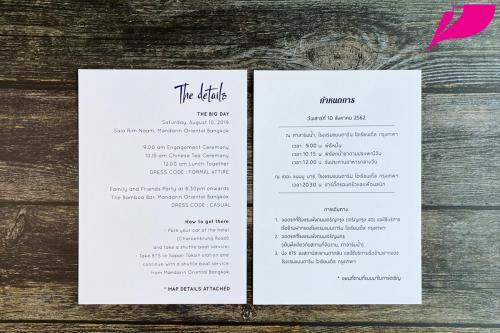 The details
THE BIG DAY
Saturday, August 10, 2019
Sala Rim Naam, Mandarin Oriental Bangkok
9.00 am Engagement Ceremony
10.15 am Chinese Tea Ceremony
12.00 am Lunch Together
DRESS CODE : FORMAL ATTIRE
Family and Friends Party at 8.30pm onwards
The Bamboo Bar, Mandarin Oriental Bangkok
DRESS CODE : CASUAL
How to get there
Park your car at the hotel
(Charoenkrung Road)
and take a shuttle boat service
Take BTS to Sapan Taksin station and
continue with a shuttle boat service
from Mandarin Oriental Bangkok
* MAP DETAILS ATTACHED
กำหนดการ
วันเสาร์ที่ 10 สิงหาคม 2562
ณ ศาลาริมน้ำ, โรงแรมแมนดาริน โอเรียนเต็ล กรุงเทพฯ
เวลา 9.00 น. พิธีหมั้น
เวลา 10.15 น. พิธียกน้ำชาตามประเพณีจีน
เวลา 12.00 น. รับประทานอาหารกลางวัน
ณ เดอะ แบมบู บาร์, โรงแรมแมนดาริน โอเรียนเต็ล กรุงเทพฯ
เวลา 20.30 น. ปาร์ตี้ครอบครัวและเพื่อนสนิท
การเดินทาง
1.
2.
3. นั่ง BTS
โรงแรมแมนดาริน โอเรียนเต็ล กรุงเทพฯ